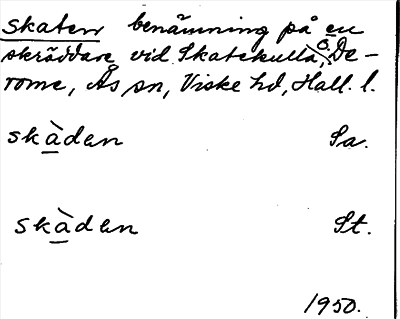 skaten benämning på en
skräddare vid Skatekulla, Ö. De-
rome, Ås sn, Viske hd, Hall. l.
skàden Sa.
skàden St.
1950.